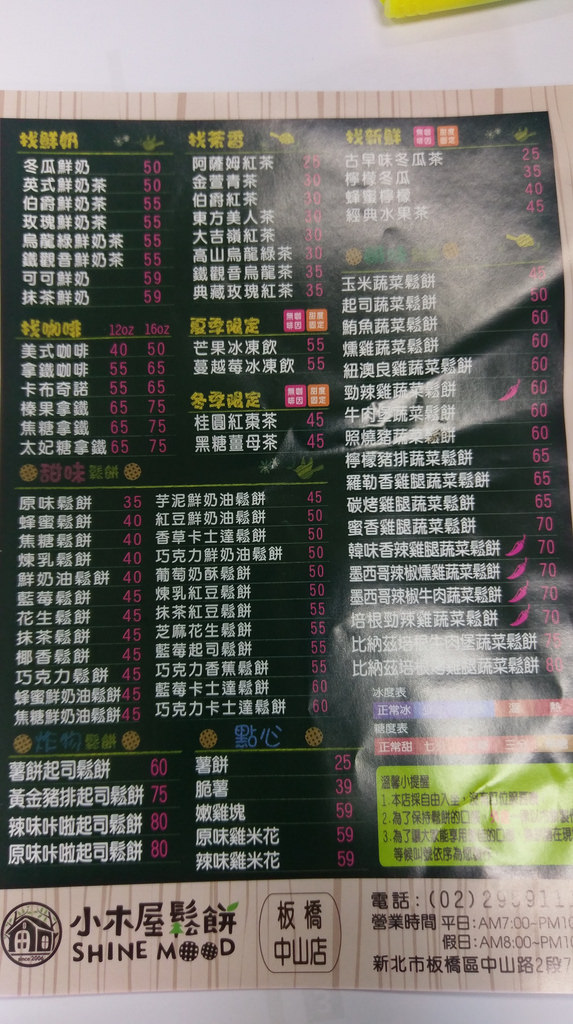 找鮮奶
冬瓜鮮奶 50
英式鮮奶茶 50
伯爵鮮奶茶 55
玫瑰鮮奶茶 55
烏龍綠鮮奶茶 55
鐵觀音鮮奶茶 55
可可鮮奶 59
抹茶鮮奶 59
找咖啡 12oz 16oz
美式咖啡 40 50
拿鐵咖啡 55 65
卡布奇諾 55 65
榛果拿鐵 65 75
焦糖拿鐵 65 75
太妃糖拿鐵 65 75
找茶香
阿薩姆紅茶 25
金萱青茶 30
伯爵紅茶 30
東方美人茶 30
大吉嶺紅茶 30
高山烏龍綠茶 30
鐵觀音烏龍茶 35
典藏玫瑰紅茶 35
夏季限定 無咖啡因 甜度固定
芒果冰凍飲 55
蔓越莓冰凍飲 55
冬季限定 無咖啡因 甜度固定
桂圓紅棗茶 45
黑糖薑母茶 45
找新鮮 無咖啡因 甜度固定
古早味冬瓜茶 25
檸檬冬瓜 35
蜂蜜檸檬 40
經典水果茶 45
玉米蔬菜鬆餅 45
起司蔬菜鬆餅 50
鮪魚蔬菜鬆餅 60
燻雞蔬菜鬆餅 60
紐澳良雞蔬菜鬆餅 60
勁辣雞蔬菜鬆餅 60
牛肉堡蔬菜鬆餅 60
照燒豬蔬菜鬆餅 60
檸檬豬排蔬菜鬆餅 65
羅勒香雞腿蔬菜鬆餅 65
碳烤雞腿蔬菜鬆餅 65
蜜香雞腿蔬菜鬆餅 70
韓味香辣雞腿蔬菜鬆餅 70
墨西哥辣椒燻雞蔬菜鬆餅 70
墨西哥辣椒牛肉蔬菜鬆餅 70
培根勁辣雞蔬菜鬆餅 70
比納茲培根牛肉堡蔬菜鬆餅 75
比納茲培根 雞腿蔬菜鬆餅 80
甜味鬆餅
原味鬆餅 35
蜂蜜鬆餅 40
焦糖鬆餅 40
煉乳鬆餅 40
鮮奶油鬆餅 40
藍莓鬆餅 45
花生鬆餅 45
抹茶鬆餅 45
椰香鬆餅 45
巧克力鬆餅 45
蜂蜜鮮奶油鬆餅 45
焦糖鮮奶油鬆餅 45
芋泥鮮奶油鬆餅 45
紅豆鮮奶油鬆餅 50
香草卡士達鬆餅 50
巧克力鮮奶油鬆餅 50
葡萄奶酥鬆餅 50
煉乳紅豆鬆餅 50
抹茶紅豆鬆餅 55
芝麻花生鬆餅 55
藍莓起司鬆餅 55
巧克力香蕉鬆餅 55
藍莓卡士達鬆餅 60
巧克力卡士達鬆餅 60
炸物鬆餅
薯餅起司鬆餅 60
黃金豬排起司鬆餅 75
辣味咔啦起司鬆餅 80
原味咔啦起司鬆餅 80
點心
薯餅 25
脆薯 39
嫩雞塊 59
原味雞米花 59
辣味雞米花 59
冰度表
正常冰 溫 熱
糖度表
正常甜 七 三
溫馨小提醒
1.本店採自由入座,
2.為了保持鬆餅的口
3.為了讓大家能享用
等候叫號依序為您
小木屋鬆餅
SHINE MOOD
since2006
板橋
中山店
電話:(02)29
營業時間 平日:AM7:00~PM10
假日:AM8:00~PM10
新北市板橋區中山路2段7